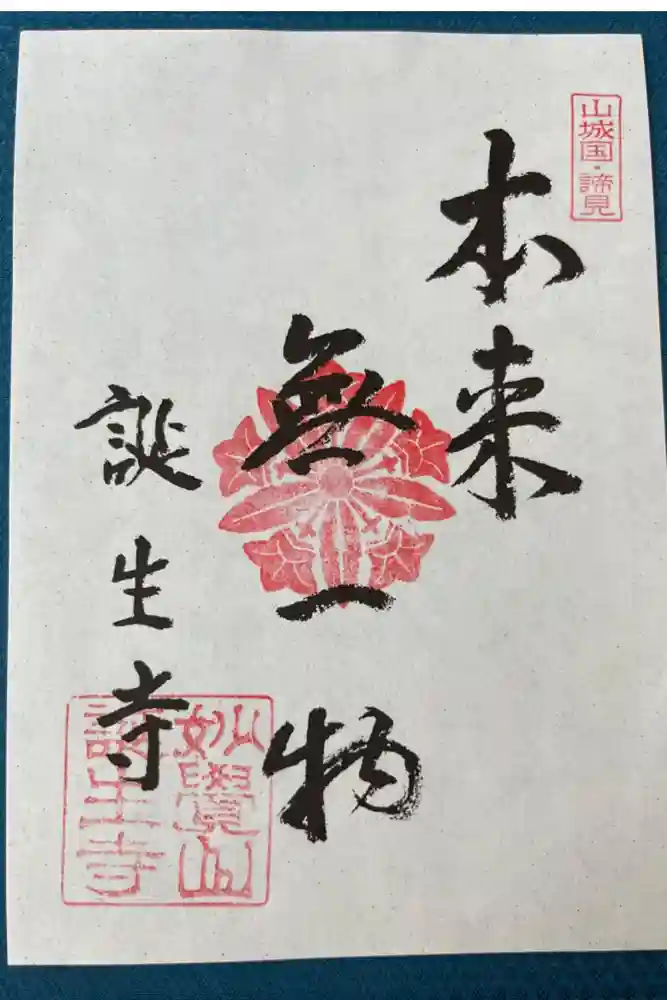 山城国・諦見
本来
無一物
誕生寺
妙覺山
誕生寺